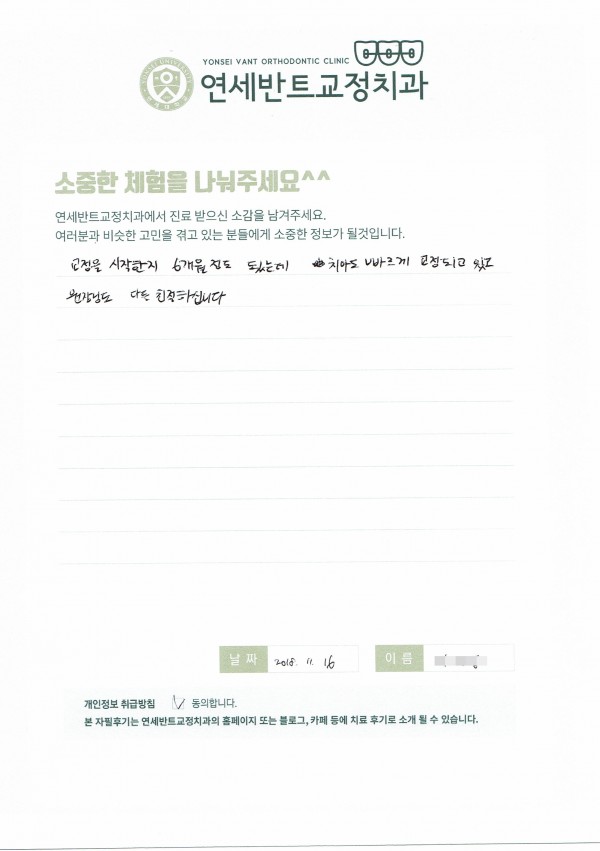 YONSEI VANT ORTHODONTIC CLINIC
연세반트교정치과
소중한 체험을 나눠주세요^^
연세반트교정치과에서 진료 받으신 소감을 남겨주세요.
여러분과 비슷한 고민을 겪고 있는 분들에게 소중한 정보가 될것입니다.
교정을 시작한지 6개월 정도 되었는데 치아도 빠르게 교정되고 있고
원장님도 다른 친절하십니다
날 짜 2018. 11. 16 이 름
개인정보 취급방침 동의합니다.
본 자필후기는 연세반트교정치과의 홈페이지 또는 블로그, 카페 등에 치료 후기로 소개 될 수 있습니다.